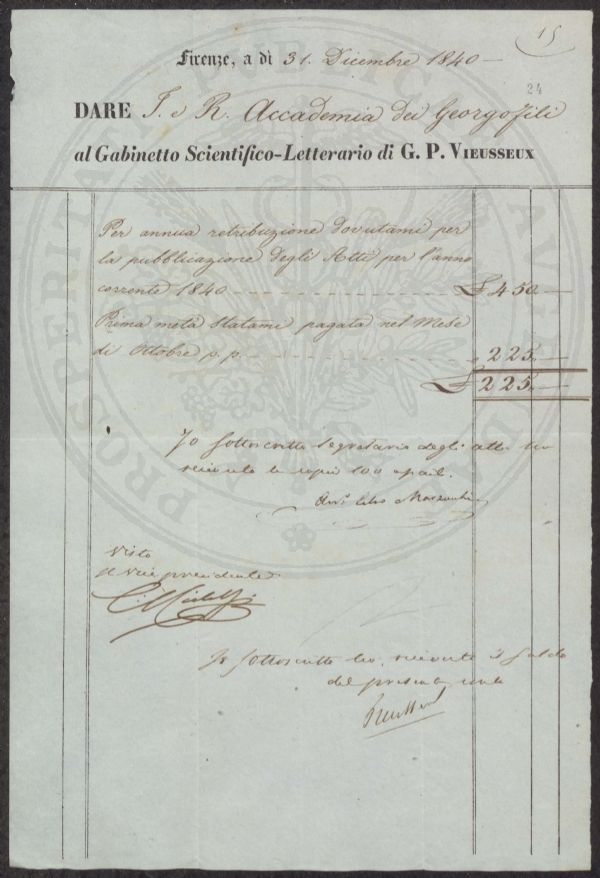 15
Firenze, a dì 31. Dicembre 1840
24
DARE I. e R. Accademia dei Georgofili
al Gabinetto Scientifico-Letterario di G. P. VIEUSSEUX
Per annua retribuzione dovutami per
la pubblicazione degli Atti per l'anno
corrente 1840 £ 450
Prima metà statami pagata nel Mese
di Ottobre p. p. " 225
£ 225
Io sottoscritto Segretario degli atti ho
ricevuto le copie 100
Visto
Il Vice presidente
Io sottoscritto ho ricevuto il saldo
del presente conto
Vieusseux
PROSPERITATI PUBLICAE